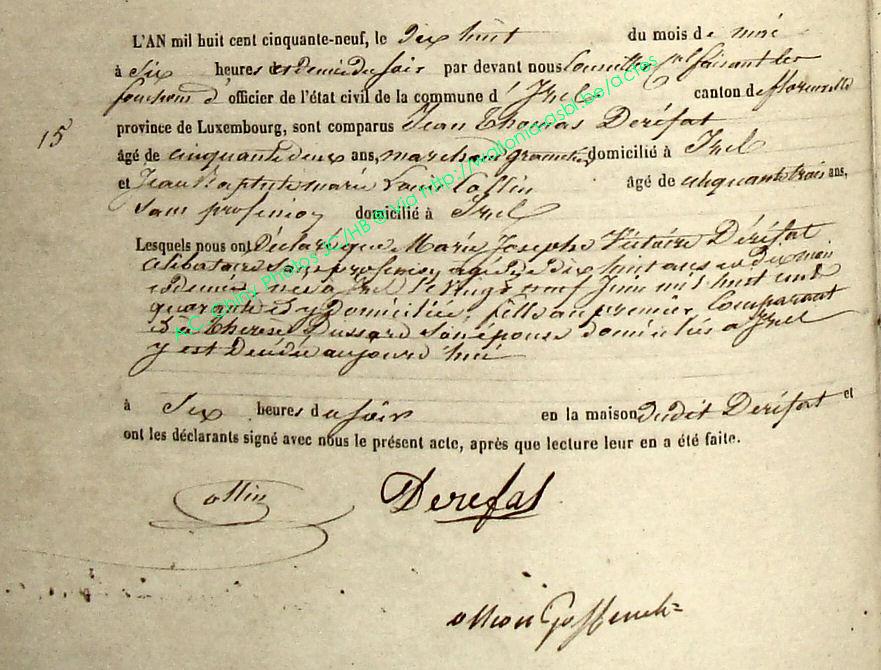 L'AN mil huit cent cinquante-neuf, le dix huit du mois de mai
à six heures et demie du soir par devant nous conseiller faisant les
fonctions d'officier de l'état civil de la commune d'Izel canton de florenville
15 province de Luxembourg, sont comparus Jean Thomas Deréfat
âgé de cinquante deux ans, marchand domicilié à Izel
et Jean Baptiste marie Louis Collin âgé de cinquante trois ans,
sans profession domicilié à Izel
Lesquels nous ont déclaré que Marie Josephe Victoire Deréfat
célibataire sans profession agée de dix huit ans et dix mois
et demie, née à Izel le vingt neuf juin mil huit cent
quarante et y domiciliée, fille du premier comparant
et de Therèse Dussard son épouse domiciliés à Izel
y est décédée aujourd'hui
à six heures du soir en la maison dudit Deréfat et
ont les déclarants signé avec nous le présent acte, après que lecture leur en a été faite.
ollin Derefat
AC Chiny Photos JC/HB @ via http://wallonia-asbl.be/actes